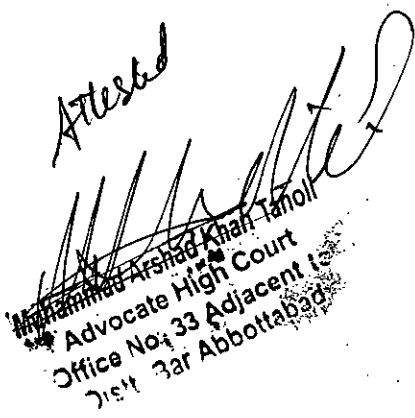 Attested
Muhammad Arshad Khan Tanoli
Advocate High Court
Office No. 33 Adjacent to
Dist. Bar Abbottabad